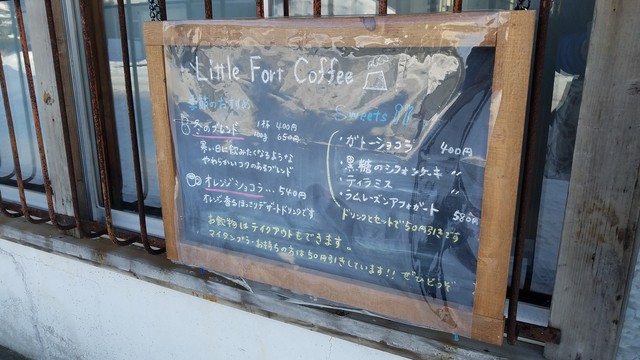 Little Fort Coffee
季節のおすすめ
冬のブレンド 1杯 400円
100g 650円
寒い日に飲みたくなるような
やわらかいコクのあるブレンド
オレンジショコラ... 540円
オレンジ香るほっこりデザートドリンクです
お飲物はテイクアウトもできます。
マイタンブラーお持ちの方は50円引きしています!! ぜひどうぞ
Sweets
・ガトーショコラ 400円
・黒糖のシフォンケーキ 〃
・ティラミス 〃
・ラムレーズンアフォガート 580円
ドリンクとセットで50円引きです